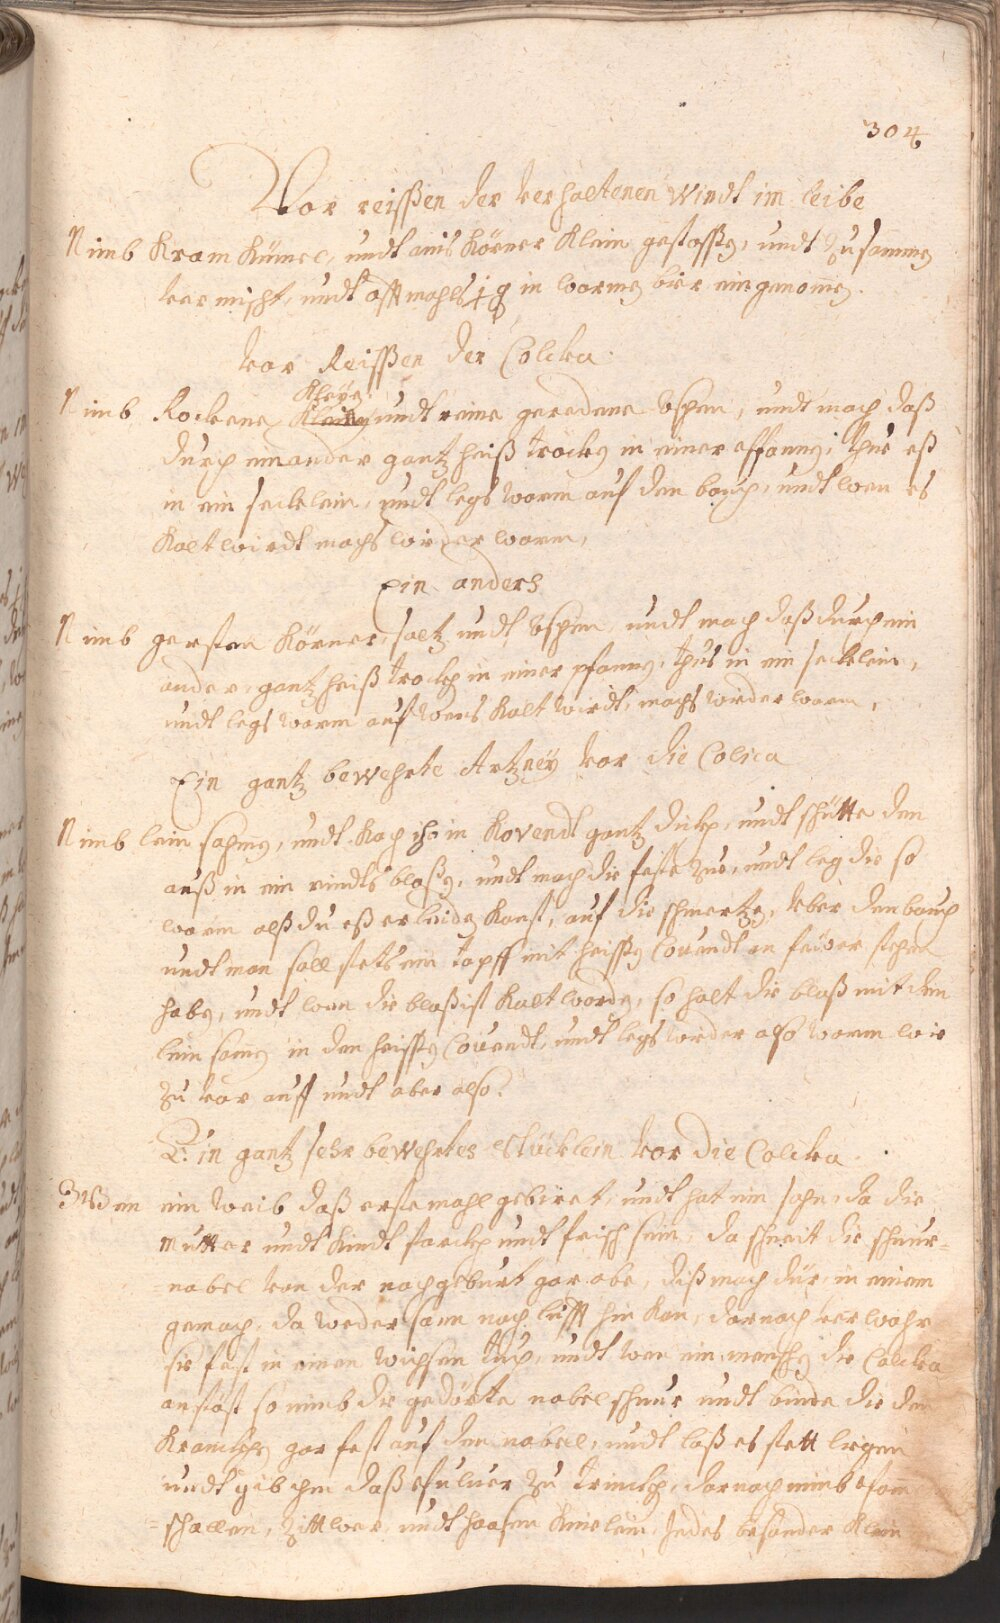 304
Vor reissen der verhaltenen Windt im leibe
Nimb Kram Kümel, undt anis Körner Klein gestossen, undt zusammen
vermischt, undt offtmahls in warmen bier eingenomen.
vor Reissen der Colicka.
Kleyen
Nimb Rockene undt reine geredene Aschen, undt mach daß
durch einander gantz heiß trocken in einer pfannen, thue eß
in ein secklein, undt legs warm auf den bauch, undt wen es
Kalt wirdt machs wieder warm,
Ein anders
Nimb gersten Körner, saltz undt Aschen, undt mach daß durch ein
ander, gantz heiß trocken in einer pfannen, thus in ein secklein,
undt legs warm auf wens Kalt wirdt, machs wieder warm,
Ein gantz bewehrte Artzney vor die Colica
Nimb lein samen, undt Koch ihn in Kovendt gantz dick, undt schütte den
auß in ein rindts blaßen, undt mach die feste zue, undt leg die so
warm alß du eß erleiden Kanst, auf die schmertzen, über den bauch
undt man soll stets ein topff mit heissen Covendt an feüer stehen
haben, undt wen die blaß ist Kalt worden, so halt die blaß mit dem
lein samen in den heissen Covendt, undt legs wieder also warm wie
zu vor auff undt aber also.
Ein gantz sehr bewehrtes Stücklein vor die Colicka.
Wen ein Weib daß erste mahl gebiret, undt hat ein sohn, da die
Mutter undt Kindt starck undt frisch sein, da schneit die schnur=
=nabel von der nachgeburt gar abe, diß mach dür, in einem
gemach, da weder sonn noch lufft hin Kan, darnach verwahr
sie fast in einen wichsen tuch, undt wen ein menschen die Colicka
anstöst so nimb die gedörte nabelschnur undt binde die dem
Krancken gar fest auf den nabel, undt laß es stett liegen
undt gib ihm daß pfulver zu trincken, darnach nimb
=schallen, Zittwer, undt hasen Knielein, Jedes besonder Klein